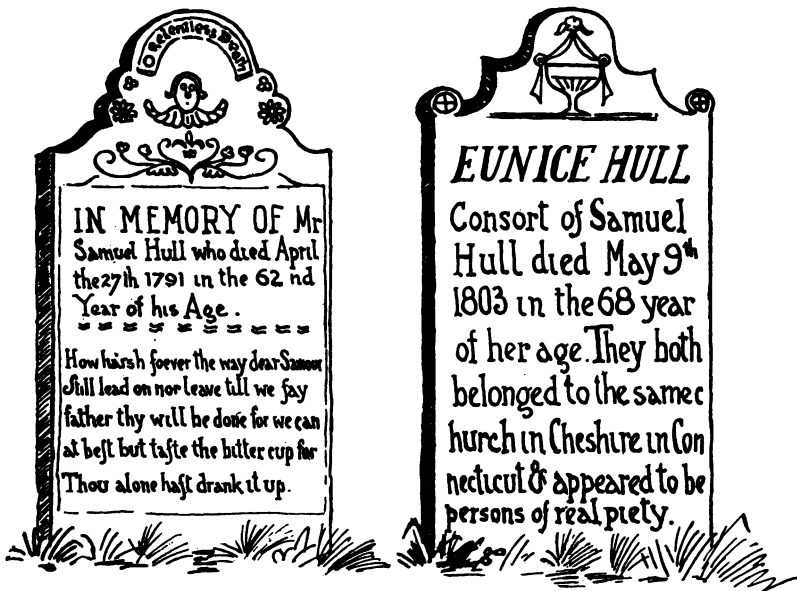 O Relentless Death
IN MEMORY OF Mr
Samuel Hull who died April
the 27th 1791 in the 62 nd
Year of his Age.
How harsh soever the way dear Saviour
ſtill lead on nor leave till we ſay
father thy will be done for we can
at beſt but taſte the bitter cup for
Thou alone haſt drank it up.
EUNICE HULL
Consort of Samuel
Hull died May 9th
1803 in the 68 year
of her age. They both
belonged to the same c
hurch in Cheshire in Con
necticut & appeared to be
persons of real piety.